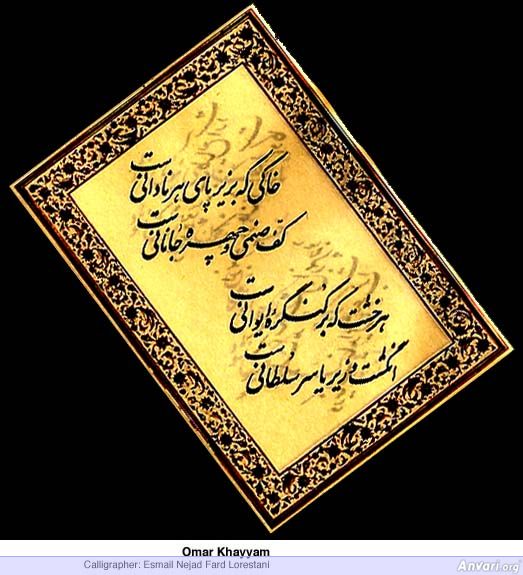 خاکی که بزیر پای هر نادانیست
کف صنمی و چهره جانانیست
هر خشت که بر کنگره ایوانیست
انگشت وزیر یا سر سلطانیست
Omar Khayyam
Calligrapher: Esmail Nejad Fard Lorestani
Anvari.org